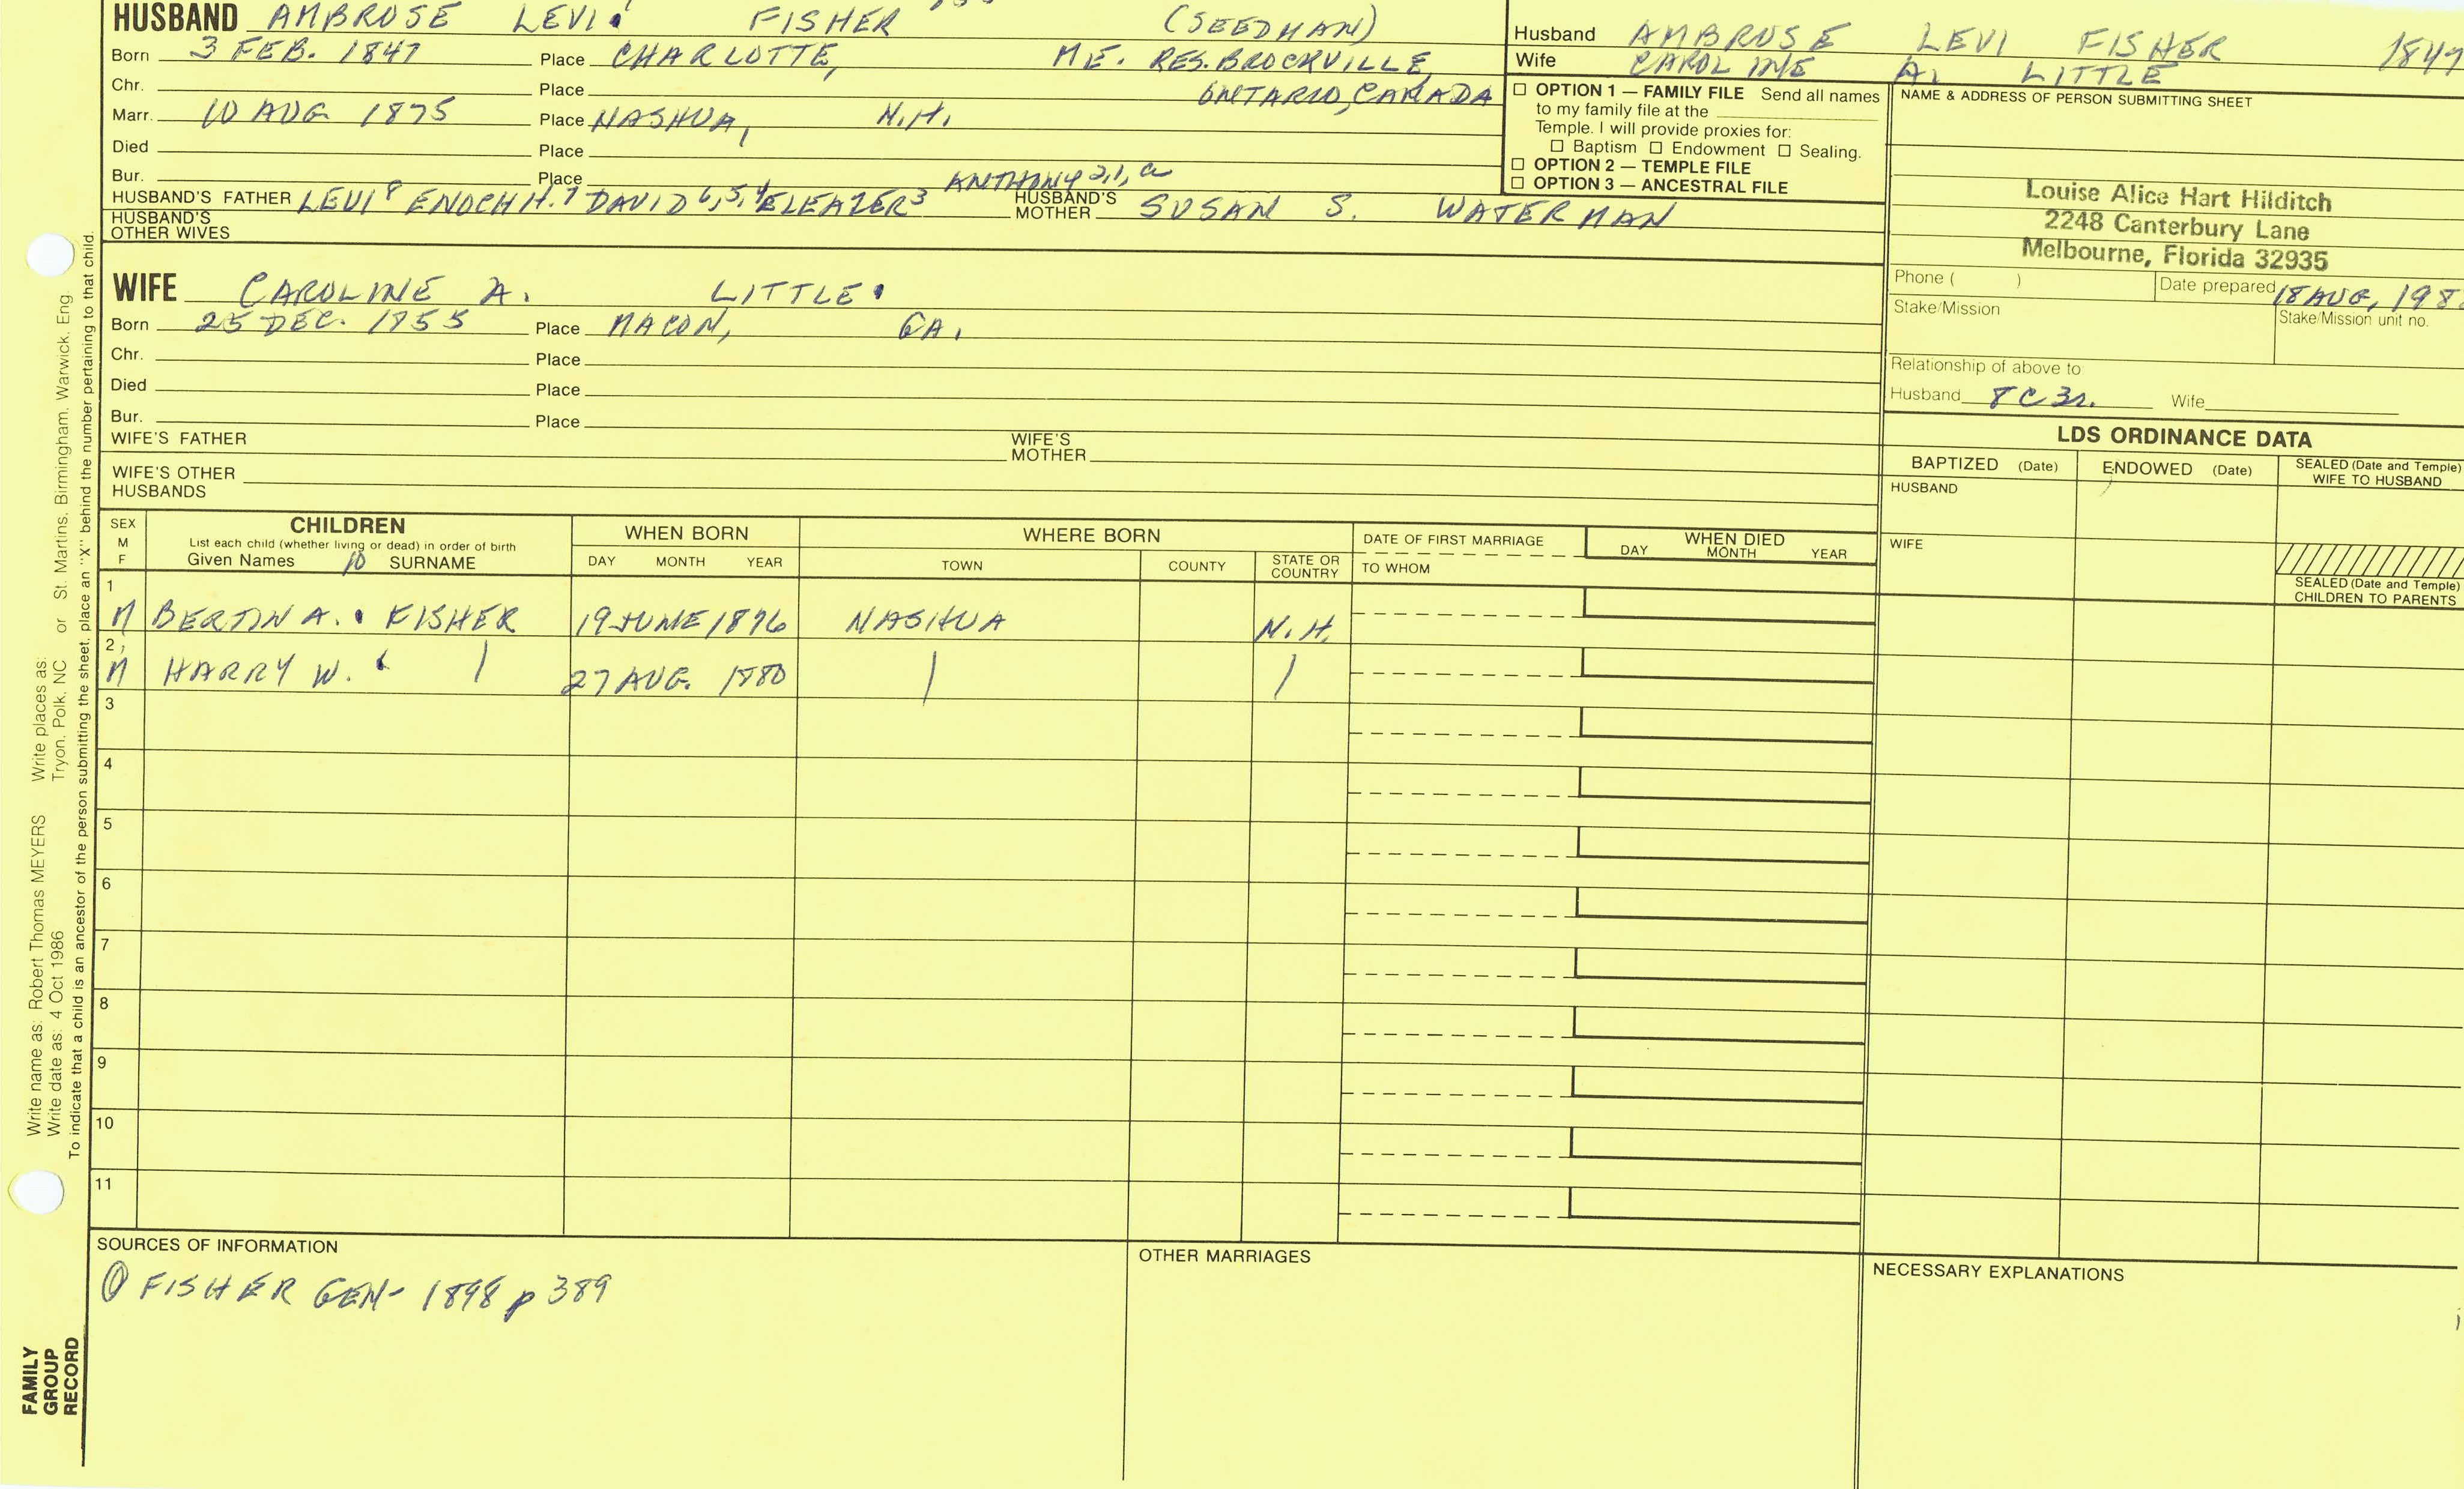 HUSBAND AMBROSE LEVI FISHER (SEEDMAN)
Born 3 FEB. 1847 Place CHARLOTTE, ME. RES. BROCKVILLE,
Chr. Place ONTARIO, CANADA
Marr. 10 AUG 1875 Place NASHUA, N.H.
Died Place
Bur. Place
ANTHONY 2,1,a
HUSBAND'S FATHER LEVI 8 ENOCH H. 7 DAVID 6,5,4 ELEAZER 3 HUSBAND'S MOTHER SUSAN S. WATERMAN
HUSBAND'S OTHER WIVES
WIFE CAROLINE A. LITTLE
Born 25 DEC. 1855 Place MACON, GA.
Chr. Place
Died Place
Bur. Place
WIFE'S FATHER WIFE'S MOTHER
WIFE'S OTHER HUSBANDS
Husband AMBROSE LEVI FISHER 1847
Wife CAROLINE A. LITTLE
☐ OPTION 1 — FAMILY FILE Send all names
to my family file at the
Temple. I will provide proxies for:
☐ Baptism ☐ Endowment ☐ Sealing.
☐ OPTION 2 — TEMPLE FILE
☐ OPTION 3 — ANCESTRAL FILE
NAME & ADDRESS OF PERSON SUBMITTING SHEET
Louise Alice Hart Hilditch
2248 Canterbury Lane
Melbourne, Florida 32935
Phone ( ) Date prepared 18 AUG, 198
Stake/Mission Stake/Mission unit no.
Relationship of above to
Husband 8C3r. Wife
LDS ORDINANCE DATA
BAPTIZED (Date) ENDOWED (Date) SEALED (Date and Temple)
WIFE TO HUSBAND
HUSBAND
WIFE
SEALED (Date and Temple)
CHILDREN TO PARENTS
SEX
M
F
CHILDREN
List each child (whether living or dead) in order of birth
Given Names 10 SURNAME
WHEN BORN
DAY MONTH YEAR
WHERE BORN
TOWN COUNTY STATE OR COUNTRY
DATE OF FIRST MARRIAGE
TO WHOM
WHEN DIED
DAY MONTH YEAR
1
M BERTIN A. FISHER 19 JUNE 1876 NASHUA N.H.
2
M HARRY W. 27 AUG. 1880
3
4
5
6
7
8
9
10
11
SOURCES OF INFORMATION
① FISHER GEN- 1898 p 389
OTHER MARRIAGES
NECESSARY EXPLANATIONS
Write name as: Robert Thomas MEYERS Write places as:
Write date as: 4 Oct 1986 Tryon, Polk, NC or St. Martins, Birmingham, Warwick, Eng.
To indicate that a child is an ancestor of the person submitting the sheet, place an "X" behind the number pertaining to that child.
FAMILY
GROUP
RECORD